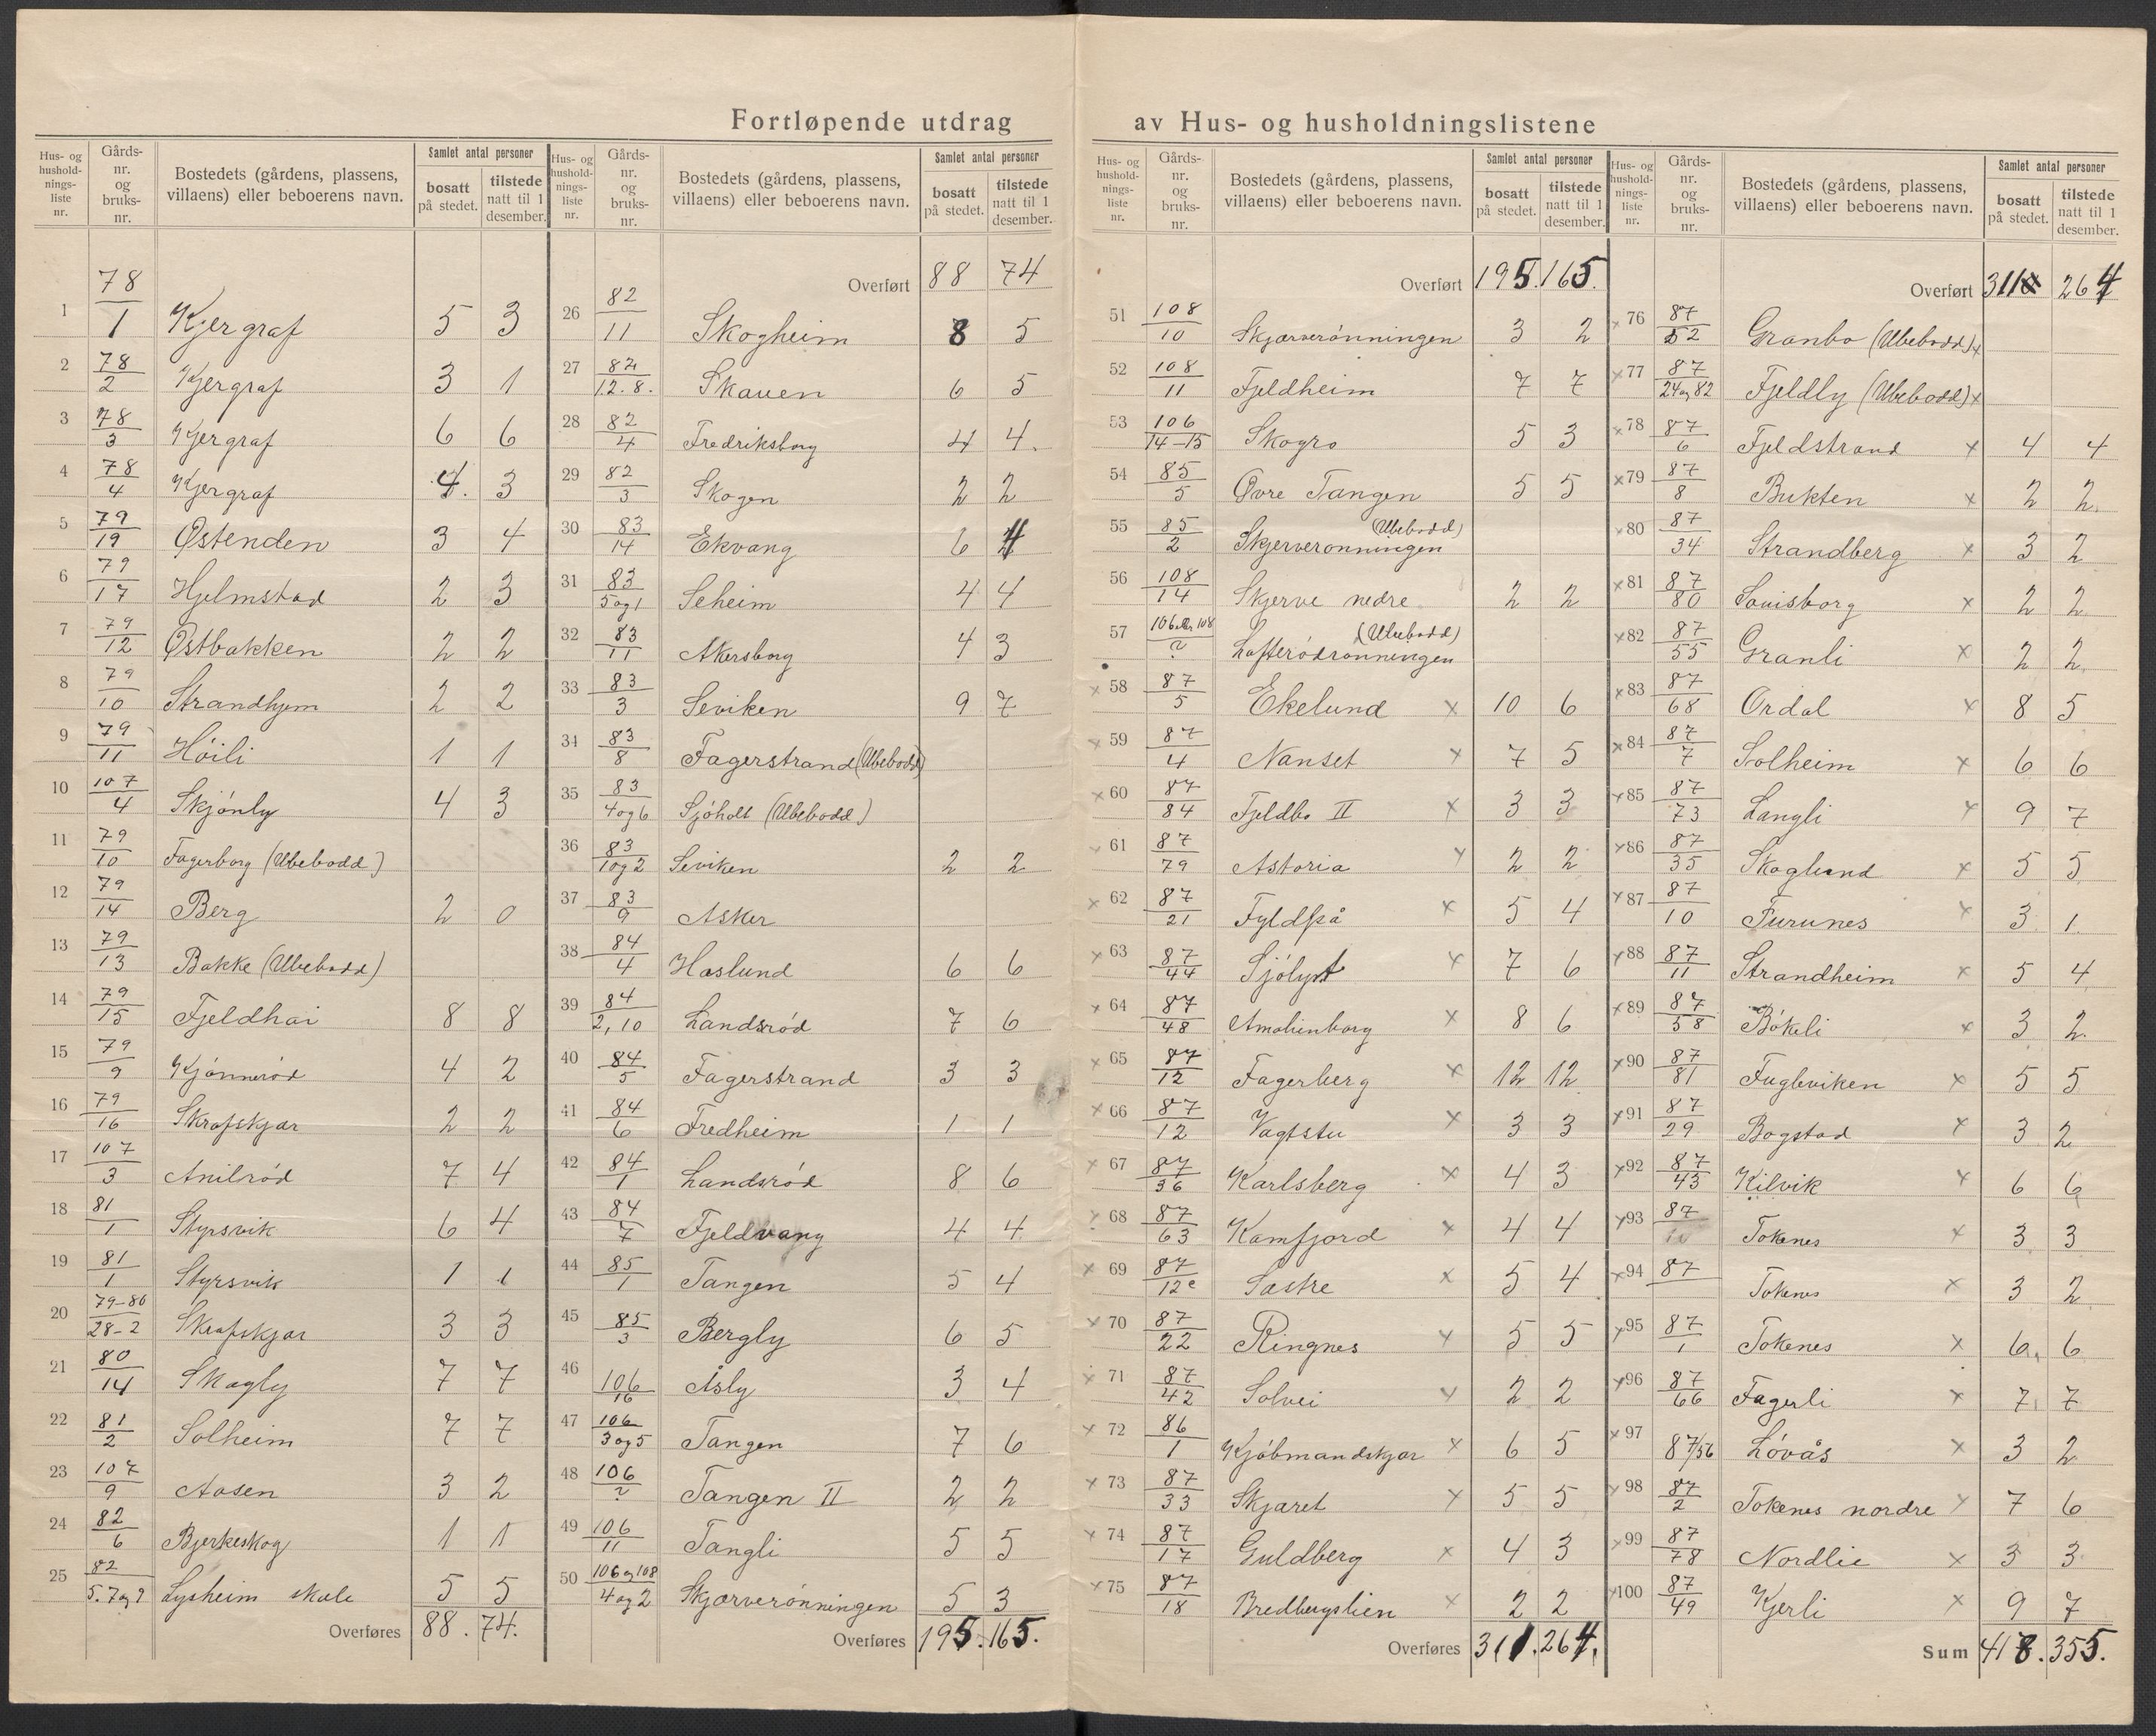 Fortløpende utdrag av Hus- og husholdningslistene
Hus- og husholdningsliste nr. | Gårdsnr. og bruksnr. | Bostedets (gårdens, plassens, villaens) eller beboerens navn. | Samlet antal personer bosatt på stedet. | tilstede natt til 1 desember.
1 78/1 Kjergraf 5 3
2 78/2 Kjergraf 3 1
3 78/3 Kjergraf 6 6
4 78/4 Kjergraf 4. 3
5 79/19 Østenden 3 4
6 79/17 Hjelmstad 2 3
7 79/12 Østbakken 2 2
8 79/10 Strandhjem 2 2
9 79/11 Høili 1 1
10 107/4 Skjønly 4 3
11 79/10 Fagerborg (Ubebodd)
12 79/14 Berg 2 0
13 79/13 Bakke (Ubebodd)
14 79/15 Fjeldhai 8 8
15 79/9 Kjønnerød 4 2
16 79/16 Skrafskjær 2 2
17 107/3 Anilrød 7 4
18 81/1 Styrsvik 6 4
19 81/1 Styrsvik 1 1
20 79-80/28-2 Skrafskjær 3 3
21 80/14 Skogly 7 7
22 81/2 Solheim 7 7
23 107/9 Aasen 3 2
24 82/6 Bjerkeskog 1 1
25 82/5.7og9 Lysheim skole 5 5
Overføres 88. 74.
Hus- og husholdningsliste nr. | Gårdsnr. og bruksnr. | Bostedets (gårdens, plassens, villaens) eller beboerens navn. | Samlet antal personer bosatt på stedet. | tilstede natt til 1 desember.
Overført 88 74
26 82/11 Skogheim 8 5
27 82/12.8. Skauen 6 5
28 82/4 Fredriksborg 4 4.
29 82/3 Skogen 2 2
30 83/14 Ekvang 6 4
31 83/5og1 Seheim 4 4
32 83/11 Akersborg 4 3
33 83/3 Seviken 9 7
34 83/8 Fagerstrand (Ubebodd)
35 83/4og6 Sjøholt (Ubebodd)
36 83/1og2 Seviken 2 2
37 83/9 Asker
38 84/4 Haslund 6 6
39 84/2,10 Landsrød 7 6
40 84/5 Fagerstrand 3 3
41 84/6 Fredheim 1 1
42 84/1 Landsrød 8 6
43 84/7 Fjeldvang 4 4
44 85/1 Tangen 5 4
45 85/3 Bergly 6 5
46 106/16 Åsly 3 4
47 106/3og5 Tangen 7 6
48 106/? Tangen II 2 2
49 106/11 Tangli 5 5
50 106og108/4og2 Skjærverønningen 5 3
Overføres 195. 165.
Hus- og husholdningsliste nr. | Gårdsnr. og bruksnr. | Bostedets (gårdens, plassens, villaens) eller beboerens navn. | Samlet antal personer bosatt på stedet. | tilstede natt til 1 desember.
Overført 195. 165.
51 108/10 Skjærverønningen 3 2
52 108/11 Fjeldheim 7 7
53 106/14-15 Skogro 5 3
54 85/5 Øvre Tangen 5 5
55 85/2 Skjerverønningen (Ubebodd)
56 108/14 Skjerve nedre 2 2
57 106 108/? Lofterødrønningen (Ubebodd)
x 58 87/5 Ekelund x 10 6
x 59 87/4 Nanset x 7 5
x 60 87/84 Fjeldbo II x 3 3
x 61 87/79 Astoria x 2 2
x 62 87/21 Fjeldså x 5 4
x 63 87/44 Sjølyst x 7 6
x 64 87/48 Amalienborg x 8 6
x 65 87/12 Fagerberg x 12 12
x 66 87/12 Vagtstu x 3 3
x 67 87/36 Karlsberg x 4 3
x 68 87/63 Kamfjord x 4 4
x 69 87/12e Sæstre x 5 4
x 70 87/22 Ringnes x 5 5
x 71 87/42 Solvei x 2 2
x 72 86/1 Kjøbmandskjær x 6 5
x 73 87/33 Skjæret x 5 5
x 74 87/17 Guldberg x 4 3
x 75 87/18 Bredbergslien x 2 2
Overføres 311. 264.
Hus- og husholdningsliste nr. | Gårdsnr. og bruksnr. | Bostedets (gårdens, plassens, villaens) eller beboerens navn. | Samlet antal personer bosatt på stedet. | tilstede natt til 1 desember.
Overført 311 264
x 76 87/52 Granbo (Ubebodd) x
x 77 87/24og82 Fjeldly (Ubebodd) x
x 78 87/6 Fjeldstrand x 4 4
x 79 87/8 Bukten x 2 2.
x 80 87/34 Strandberg x 3 2
x 81 87/80 Louisborg x 2 2
x 82 87/55 Granli x 2 2.
x 83 87/68 Ordal x 8 5
x 84 87/7 Solheim x 6 6
x 85 87/73 Langli x 9 7
x 86 87/35 Skoglund x 5 5
x 87 87/10 Furunes x 3 1.
x 88 87/11 Strandheim x 5 4
x 89 87/58 Bøkeli x 3 2.
x 90 87/81 Fugleviken x 5 5
x 91 87/29 Bogstad x 3 2
x 92 87/43 Kilvik x 6 6
x 93 87 Tokenes x 3 3
x 94 87 Tokenes x 3 2
x 95 87/1 Tokenes x 6. 6
x 96 87/66 Fagerli x 7. 7
x 97 87/56 Løvås x 3 2
x 98 87/2 Tokenes nordre x 7 6
x 99 87/78 Nordlie x 3 3
x 100 87/49 Kjerli x 9 7
Sum 418. 355.